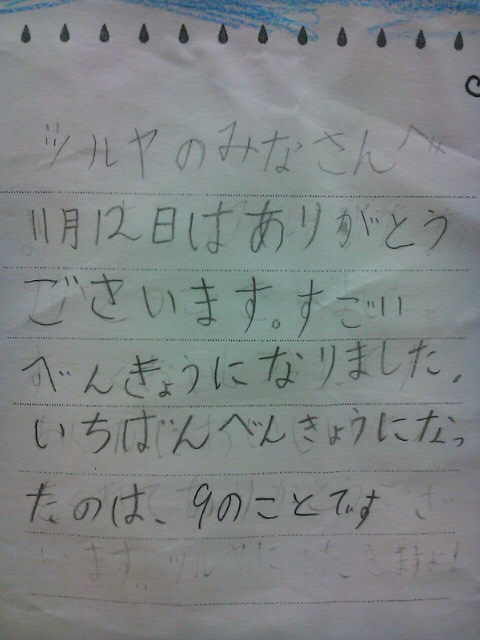 ツルヤのみなさんへ
11月12日はありがとう
ございます。すごい
べんきょうになりました。
いちばんべんきょうになっ
たのは、9のことです
います。ツルヤに